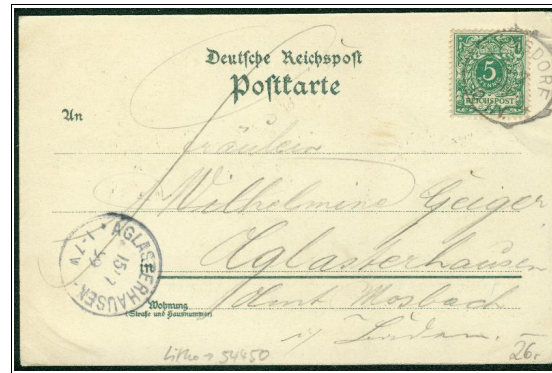 Deutsche Reichspost
Postkarte
5
PFENNIG
REICHSPOST
SDORF
An
Fräulein
Wilhelmine Geiger
Aglasterhausen
in
Amt Mosbach
i/ Baden.
Wohnung
(Straße und Hausnummer)
AGLASTERHAUSEN
15/7
99
1-7N
Litho → 54450
26,-